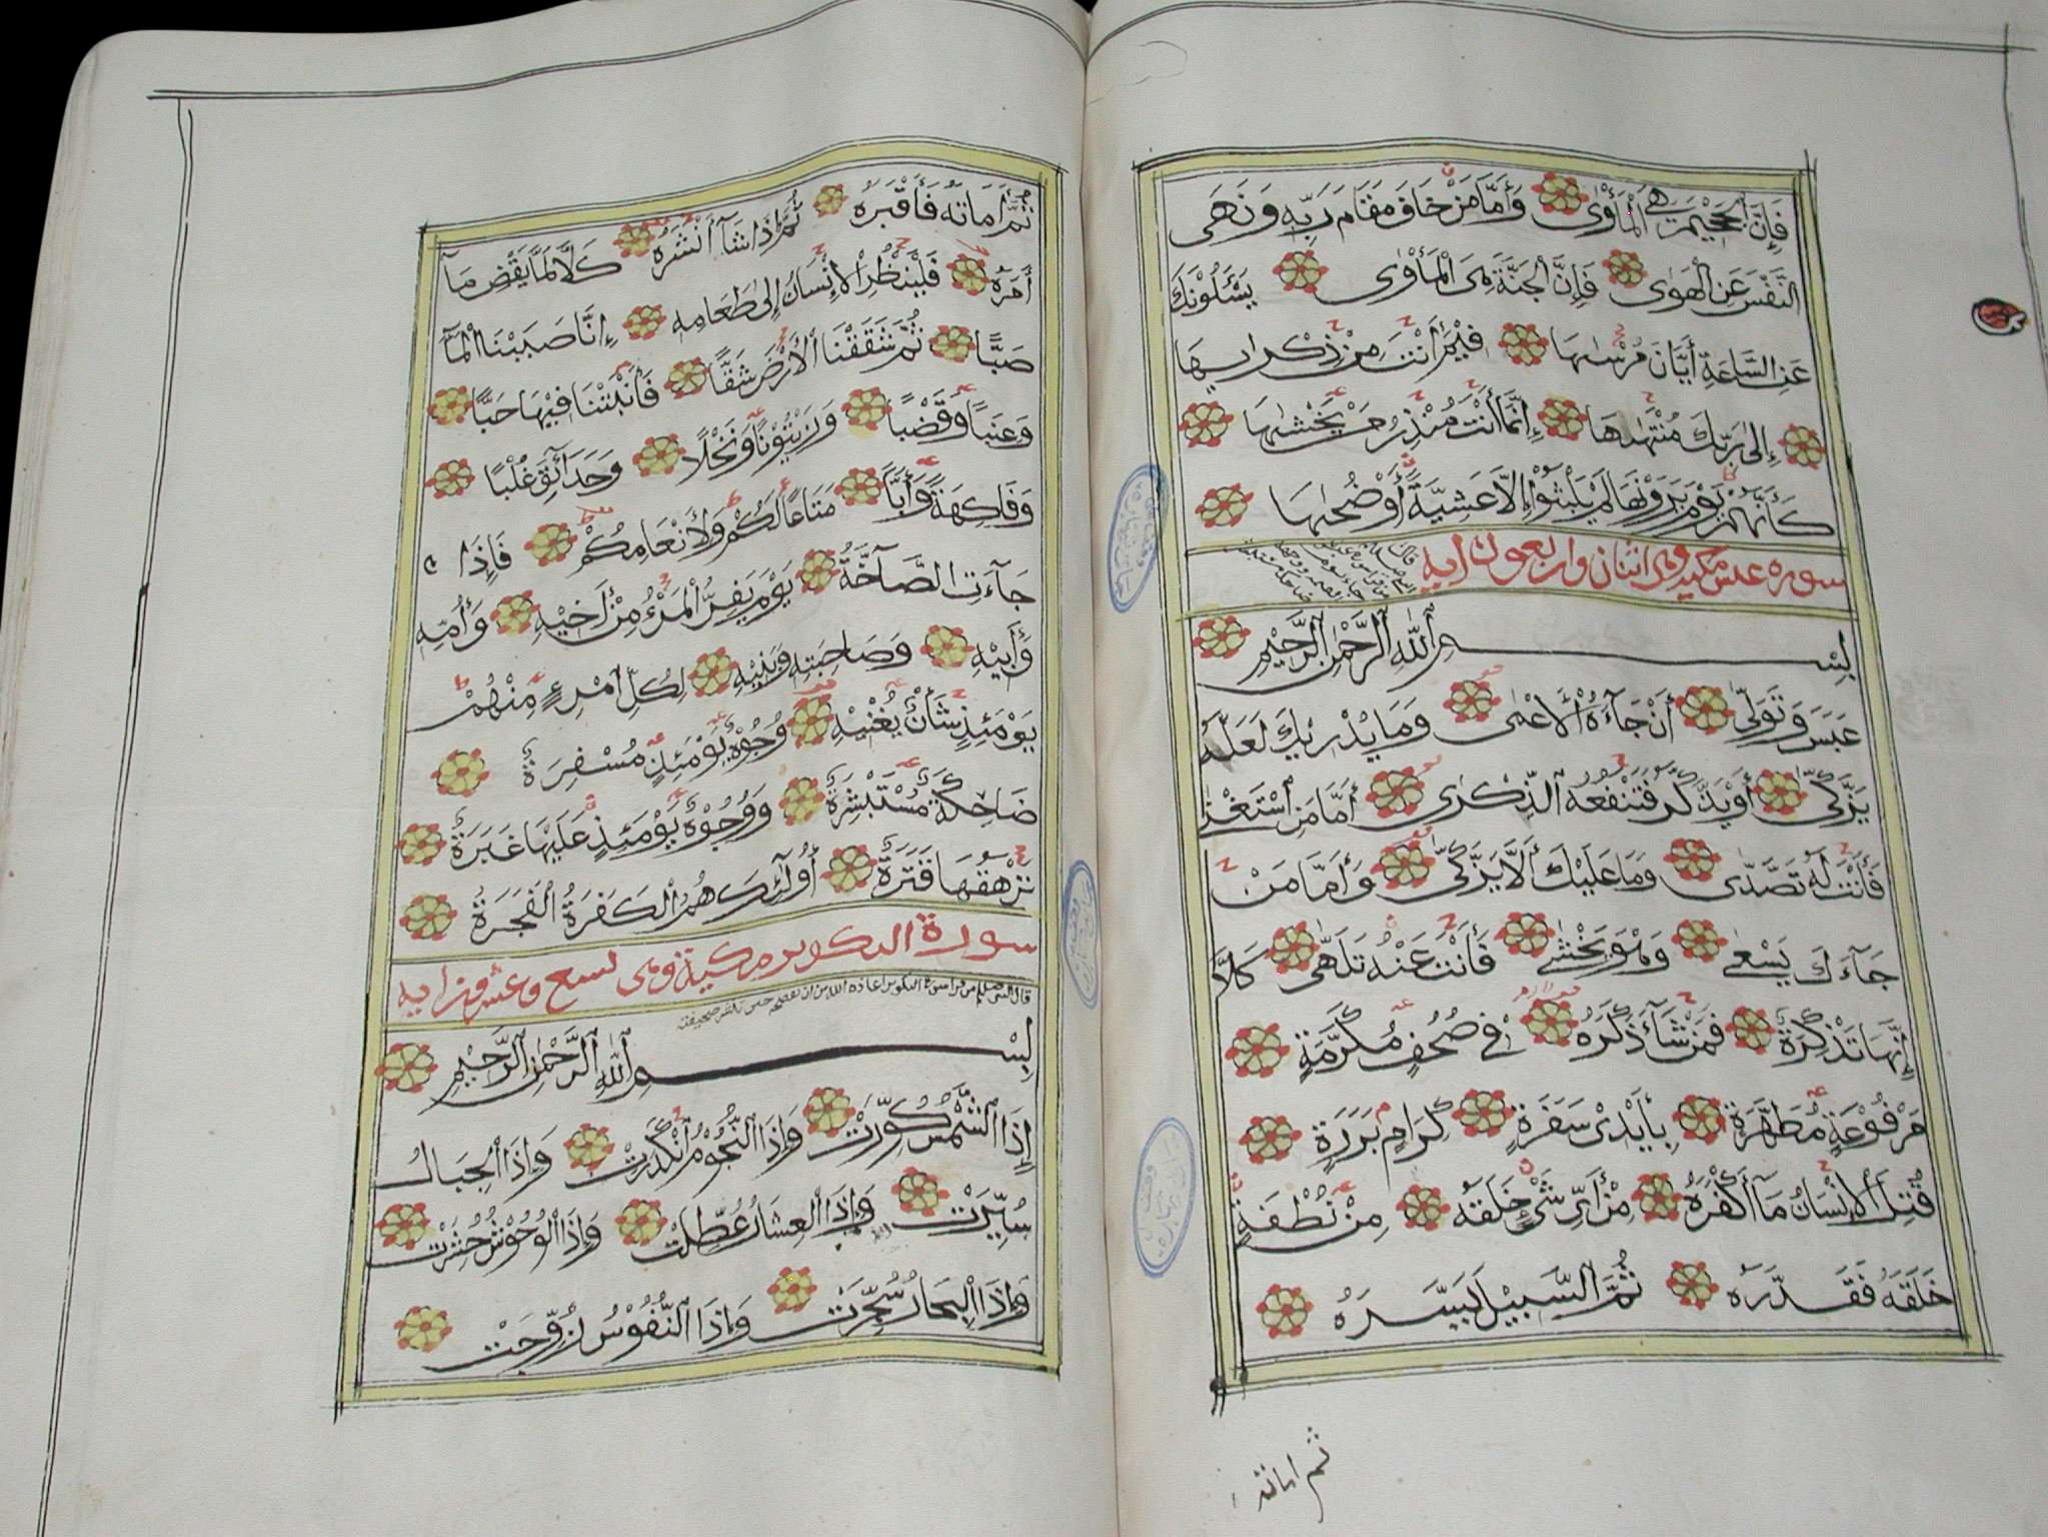 فَإِنَّ الْجَحِيْمَ هِيَ الْمَأْوٰى وَأَمَّا مَنْ خَافَ مَقَامَ رَبِّهٖ وَنَهَى
النَّفْسَ عَنِ الْهَوٰى فَإِنَّ الْجَنَّةَ هِىَ الْمَأْوٰى يَسْـَٔلُوْنَكَ
عَنِ السَّاعَةِ أَيَّانَ مُرْسٰىهَا فِيْمَ أَنْتَ مِنْ ذِكْرٰىهَا
إِلٰى رَبِّكَ مُنْتَهٰىهَا إِنَّمَا أَنْتَ مُنْذِرُ مَنْ يَخْشٰىهَا
كَأَنَّهُمْ يَوْمَ يَرَوْنَهَا لَمْ يَلْبَثُوْا إِلَّا عَشِيَّةً أَوْ ضُحٰىهَا
سوره عبس مكيه وهى اثنان واربعون ايه
بِسْمِ اللّٰهِ الرَّحْمٰنِ الرَّحِيْمِ
عَبَسَ وَتَوَلّٰى أَنْ جَآءَهُ الْأَعْمٰى وَمَا يُدْرِيْكَ لَعَلَّهُ
يَزَّكّٰى أَوْ يَذَّكَّرُ فَتَنْفَعَهُ الذِّكْرٰى أَمَّا مَنِ اسْتَغْنٰى
فَأَنْتَ لَهُ تَصَدّٰى وَمَا عَلَيْكَ أَلَّا يَزَّكّٰى وَأَمَّا مَنْ
جَآءَكَ يَسْعٰى وَهُوَ يَخْشٰى فَأَنْتَ عَنْهُ تَلَهّٰى كَلَّا
إِنَّهَا تَذْكِرَةٌ فَمَنْ شَآءَ ذَكَرَهُ فِى صُحُفٍ مُكَرَّمَةٍ
مَرْفُوْعَةٍ مُطَهَّرَةٍ بِأَيْدِىْ سَفَرَةٍ كِرَامٍ بَرَرَةٍ
قُتِلَ الْإِنْسَانُ مَآ أَكْفَرَهُ مِنْ أَىِّ شَىْءٍ خَلَقَهُ مِنْ نُطْفَةٍ
خَلَقَهُ فَقَدَّرَهُ ثُمَّ السَّبِيْلَ يَسَّرَهُ
ثم اماته
ثُمَّ أَمَاتَهُ فَأَقْبَرَهُ ثُمَّ إِذَا شَآءَ أَنْشَرَهُ كَلَّا لَمَّا يَقْضِ مَآ
أَمَرَهُ فَلْيَنْظُرِ الْإِنْسَانُ إِلٰى طَعَامِهٖ إِنَّا صَبَبْنَا الْمَآءَ
صَبًّا ثُمَّ شَقَقْنَا الْأَرْضَ شَقًّا فَأَنْبَتْنَا فِيْهَا حَبًّا
وَعِنَبًا وَقَضْبًا وَزَيْتُوْنًا وَنَخْلًا وَحَدَآئِقَ غُلْبًا
وَفَاكِهَةً وَأَبًّا مَتَاعًا لَكُمْ وَلِأَنْعَامِكُمْ فَإِذَا
جَآءَتِ الصَّآخَّةُ يَوْمَ يَفِرُّ الْمَرْءُ مِنْ أَخِيْهِ وَأُمِّهٖ
وَأَبِيْهِ وَصَاحِبَتِهٖ وَبَنِيْهِ لِكُلِّ امْرِئٍ مِنْهُمْ
يَوْمَئِذٍ شَأْنٌ يُغْنِيْهِ وُجُوْهٌ يَوْمَئِذٍ مُسْفِرَةٌ
ضَاحِكَةٌ مُسْتَبْشِرَةٌ وَوُجُوْهٌ يَوْمَئِذٍ عَلَيْهَا غَبَرَةٌ
تَرْهَقُهَا قَتَرَةٌ أُولٰئِكَ هُمُ الْكَفَرَةُ الْفَجَرَةُ
سورة التكوير مكية وهى تسع وعشرون ايه
قال النبى صلعم من قرا سورة التكوير اعاذه الله من ان يفضحه حين تنشر صحيفته
بِسْمِ اللّٰهِ الرَّحْمٰنِ الرَّحِيْمِ
إِذَا الشَّمْسُ كُوِّرَتْ وَإِذَا النُّجُوْمُ انْكَدَرَتْ وَإِذَا الْجِبَالُ
سُيِّرَتْ وَإِذَا الْعِشَارُ عُطِّلَتْ وَإِذَا الْوُحُوْشُ حُشِرَتْ
وَإِذَا الْبِحَارُ سُجِّرَتْ وَإِذَا النُّفُوْسُ زُوِّجَتْ